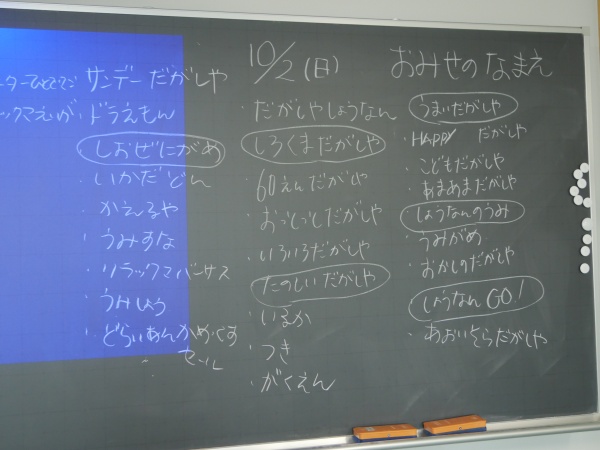 10/2(日) おみせのなまえ
うまいだがしや
HAPPY だがしや
こどもだがしや
あまあまだがしや
しょうなんのうみ
うみがめ
おかしのだがしや
しょうなんGO!
あおいそらだがしや
だがしやしょうなん
しろくまだがしや
60えんだがしや
おっとっとだがしや
いろいろだがしや
たのしいだがしや
いるか
つき
がくえん
サンデーだがしや
ドラえもん
しおぜにがめ
いかだどん
かえるや
うみすな
リラックマバーサス
うみしょう
セール